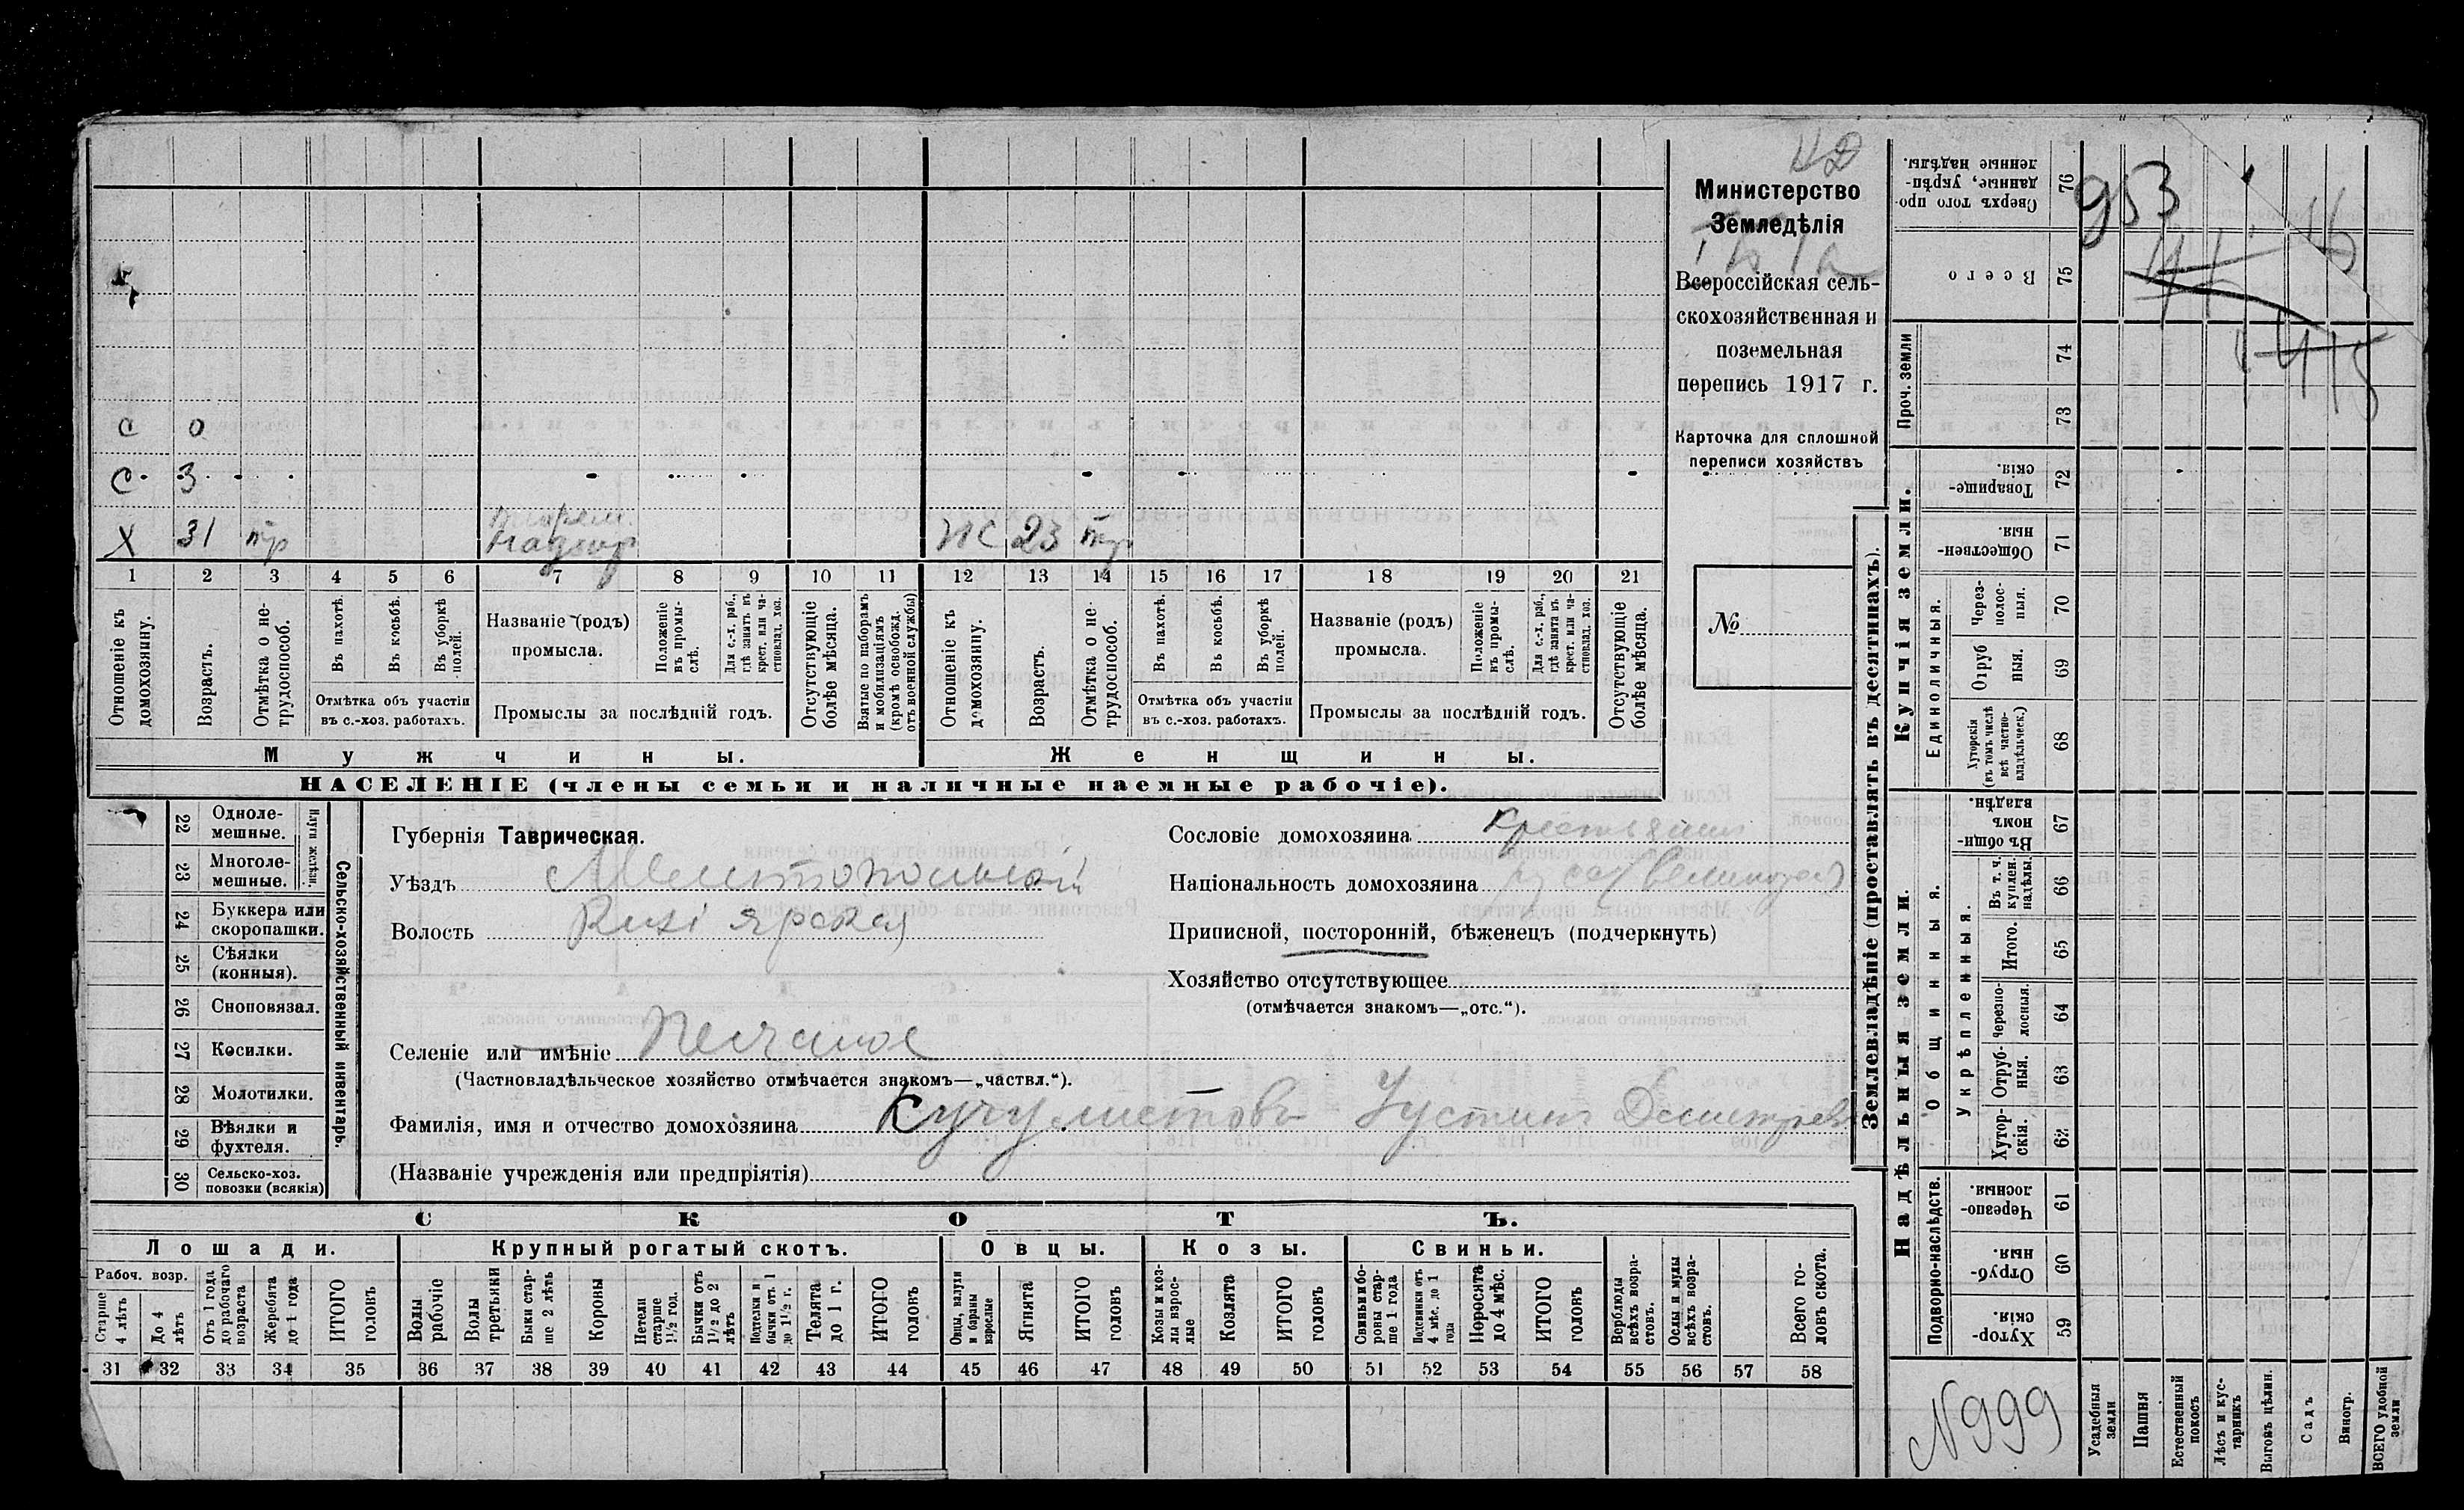 С 0
С. 3
Х 31 тр
надзир
ж 23 тр
1 2 3 4 5 6 7 8 9 10 11 12 13 14 15 16 17 18 19 20 21
Отношеніе къ домохозяину.
Возрастъ.
Отмѣтка о нетрудоспособ.
Въ пахотѣ.
Въ косьбѣ.
Въ уборкѣ полей.
Отмѣтка объ участіи
въ с.-хоз. работахъ.
Названіе (родъ)
промысла.
Положеніе въ промыслѣ.
Для с.-х. раб., гдѣ занятъ въ крест. или частновлад. хоз.
Промыслы за послѣдній годъ.
Отсутствующіе болѣе мѣсяца.
Взятые по наборамъ и мобилизаціямъ (кромѣ освобожд. отъ военной службы)
Отношеніе къ домохозяину.
Возрастъ.
Отмѣтка о нетрудоспособ.
Въ пахотѣ.
Въ косьбѣ.
Въ уборкѣ полей.
Отмѣтка объ участіи
въ с.-хоз. работахъ.
Названіе (родъ)
промысла.
Положеніе въ промыслѣ.
Для с.-х. раб., гдѣ занята въ крест. или частновлад. хоз.
Промыслы за послѣдній годъ.
Отсутствующіе болѣе мѣсяца.
Мужчины.
Женщины.
НАСЕЛЕНІЕ (члены семьи и наличные наемные рабочіе).
Министерство
Земледѣлія
Всероссійская сель-
скохозяйственная и
поземельная
перепись 1917 г.
Карточка для сплошной
переписи хозяйствъ
№
22 Однолемешные.
23 Многолемешные.
Плуги желѣзн.
24 Буккера или скоропашки.
25 Сѣялки (конныя).
26 Сноповязал.
27 Косилки.
28 Молотилки.
29 Вѣялки и фухтеля.
30 Сельско-хоз. повозки (всякія)
Сельско-хозяйственный инвентарь.
Губернія Таврическая.
Уѣздъ Мелитопольскій
Волость Кизіярская
Селеніе или имѣніе Песчаное
(Частновладѣльческое хозяйство отмѣчается знакомъ—„частвл.“).
Фамилія, имя и отчество домохозяина Устинъ
(Названіе учрежденія или предпріятія)
Сословіе домохозяина крестьянин
Національность домохозяина
Приписной, посторонній, бѣженецъ (подчеркнуть)
Хозяйство отсутствующее
(отмѣчается знакомъ—„отс.“).
СКОТЪ.
Лошади. Крупный рогатый скотъ. Овцы. Козы. Свиньи.
Рабоч. возр.
Старше 4 лѣтъ
До 4 лѣтъ
Отъ 1 года до рабочаго возраста
Жеребята до 1 года
ИТОГО головъ
Волы рабочіе
Волы третьяки
Быки старше 2 лѣтъ
Коровы
Нетели старше 1½ год.
Бычки отъ 1½ до 2 лѣтъ
Подтелки и бычки отъ 1 до 1½ г.
Телята до 1 г.
ИТОГО головъ
Овцы, валухи и бараны взрослые
Ягнята
ИТОГО головъ
Козы и козлы взрослые
Козлята
ИТОГО головъ
Свиньи и боровы старше 1 года
Подсвинки отъ 4 мѣс. до 1 года
Поросята до 4 мѣс.
ИТОГО головъ
Верблюды всѣхъ возрастовъ.
Ослы и мулы всѣхъ возрастовъ.
Всего головъ скота.
31 32 33 34 35 36 37 38 39 40 41 42 43 44 45 46 47 48 49 50 51 52 53 54 55 56 57 58
Землевладѣніе (проставлять въ десятинахъ).
Сверхъ того проданные, укрѣпленные надѣлы. 76
Всего 75
Проч. земли
74
73
Купчія земли.
Товарищескія. 72
Общественныя 71
Единоличныя.
Черезполосныя. 70
Отрубныя. 69
Хуторскія (въ томъ числѣ всѣ частновладѣльческ.) 68
Надѣльныя земли.
Общинныя.
Въ общинномъ владѣн. 67
Укрѣпленныя.
Въ т. ч. куплен. надѣлы. 66
Итого. 65
Черезполосныя. 64
Отрубныя. 63
Хуторскія. 62
Подворно-наслѣдств.
Черезполосныя. 61
Отрубныя. 60
Хуторскія. 59
953
N 999
Усадебныя земли
Пашня
Естественный покосъ
Лѣсъ и кустарникъ
Выгонъ цѣлин.
Садъ
Виногр.
ВСЕГО удобной земли